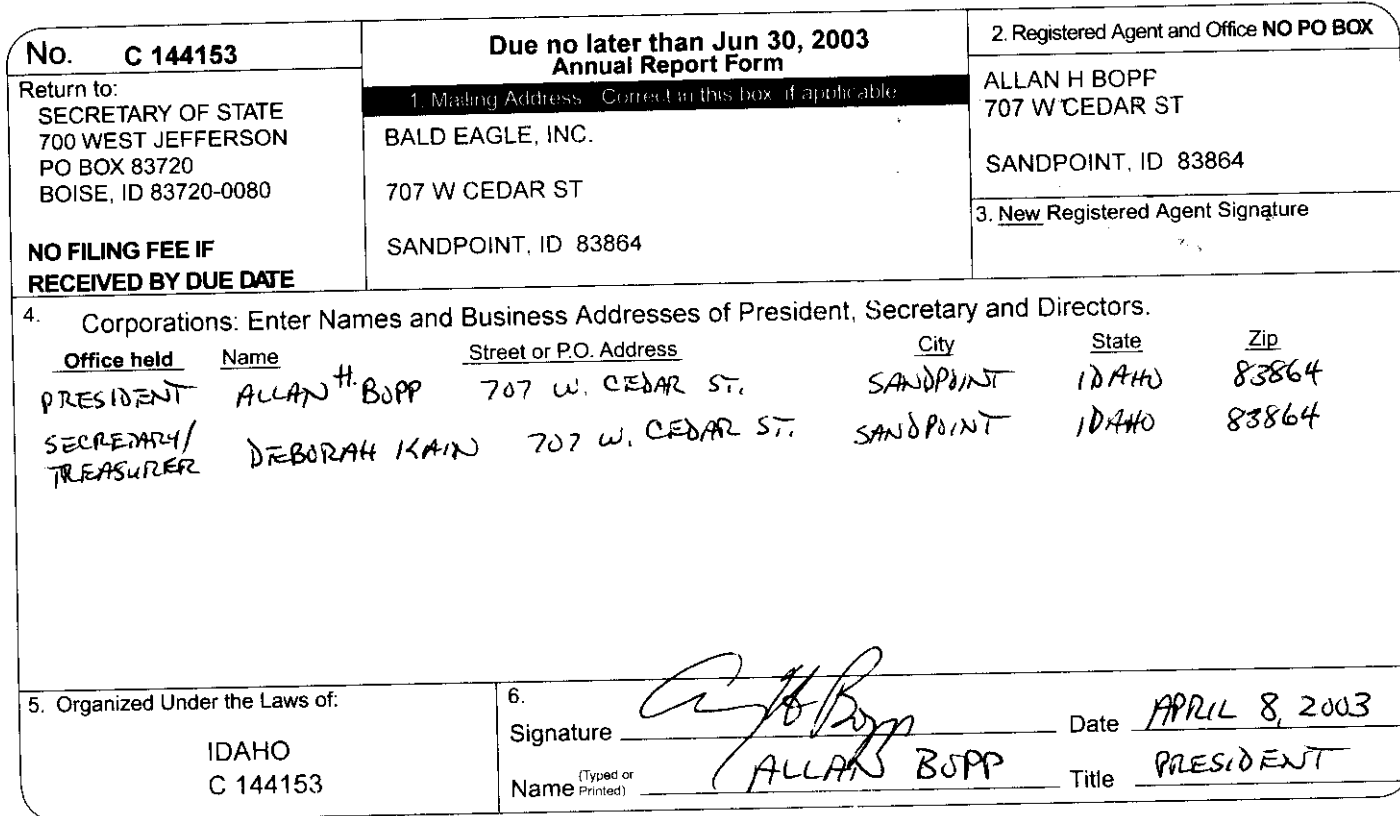 No. C 144153
Return to:
SECRETARY OF STATE
700 WEST JEFFERSON
PO BOX 83720
BOISE, ID 83720-0080
NO FILING FEE IF
RECEIVED BY DUE DATE
Due no later than Jun 30, 2003
Annual Report Form
1. Mailing Address Correct in this box if applicable
BALD EAGLE, INC.
707 W CEDAR ST
SANDPOINT, ID 83864
2. Registered Agent and Office NO PO BOX
ALLAN H BOPP
707 W CEDAR ST
SANDPOINT, ID 83864
3. New Registered Agent Signature
4. Corporations: Enter Names and Business Addresses of President, Secretary and Directors.
Office held Name Street or P.O. Address City State Zip
PRESIDENT ALLAN H. BOPP 707 W. CEDAR ST. SANDPOINT IDAHO 83864
SECRETARY/
TREASURER DEBORAH KAIN 707 W. CEDAR ST. SANDPOINT IDAHO 83864
5. Organized Under the Laws of:
IDAHO
C 144153
6.
Signature Allan H Bopp Date APRIL 8, 2003
Name (Typed or Printed) ALLAN BOPP Title PRESIDENT